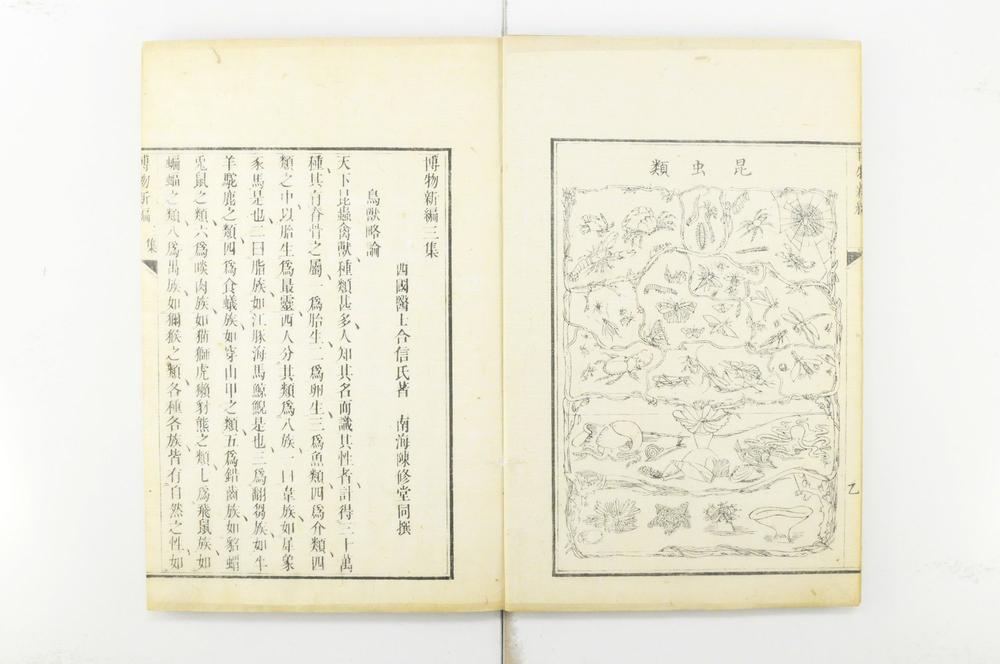 昆虫類
乙
博物新編三集
西國醫士合信氏著　南海陳修堂同撰
鳥獸略論
天下昆蟲禽獸、種類甚多、人知其名而識其性者、計得三十萬
種、其有脊骨之屬、一爲胎生、二爲卵生、三爲魚類、四爲介類、四
類之中、以胎生爲最靈、西人分其類爲八族、一曰韋族、如犀象
豕馬是也、二曰脂族、如江豚海馬鯨鯢是也、三爲翻芻族、如牛
羊駝鹿之類、四爲食蟻族、如穿山甲之類、五爲錯齒族、如貂蝟
兎鼠之類、六爲啖肉族、如猫獅虎獺豺熊之類、七爲飛鼠族、如
蝙蝠之類、八爲禺族、如獼猴之類、各種各族、皆有自然之性、如
博物新編三集